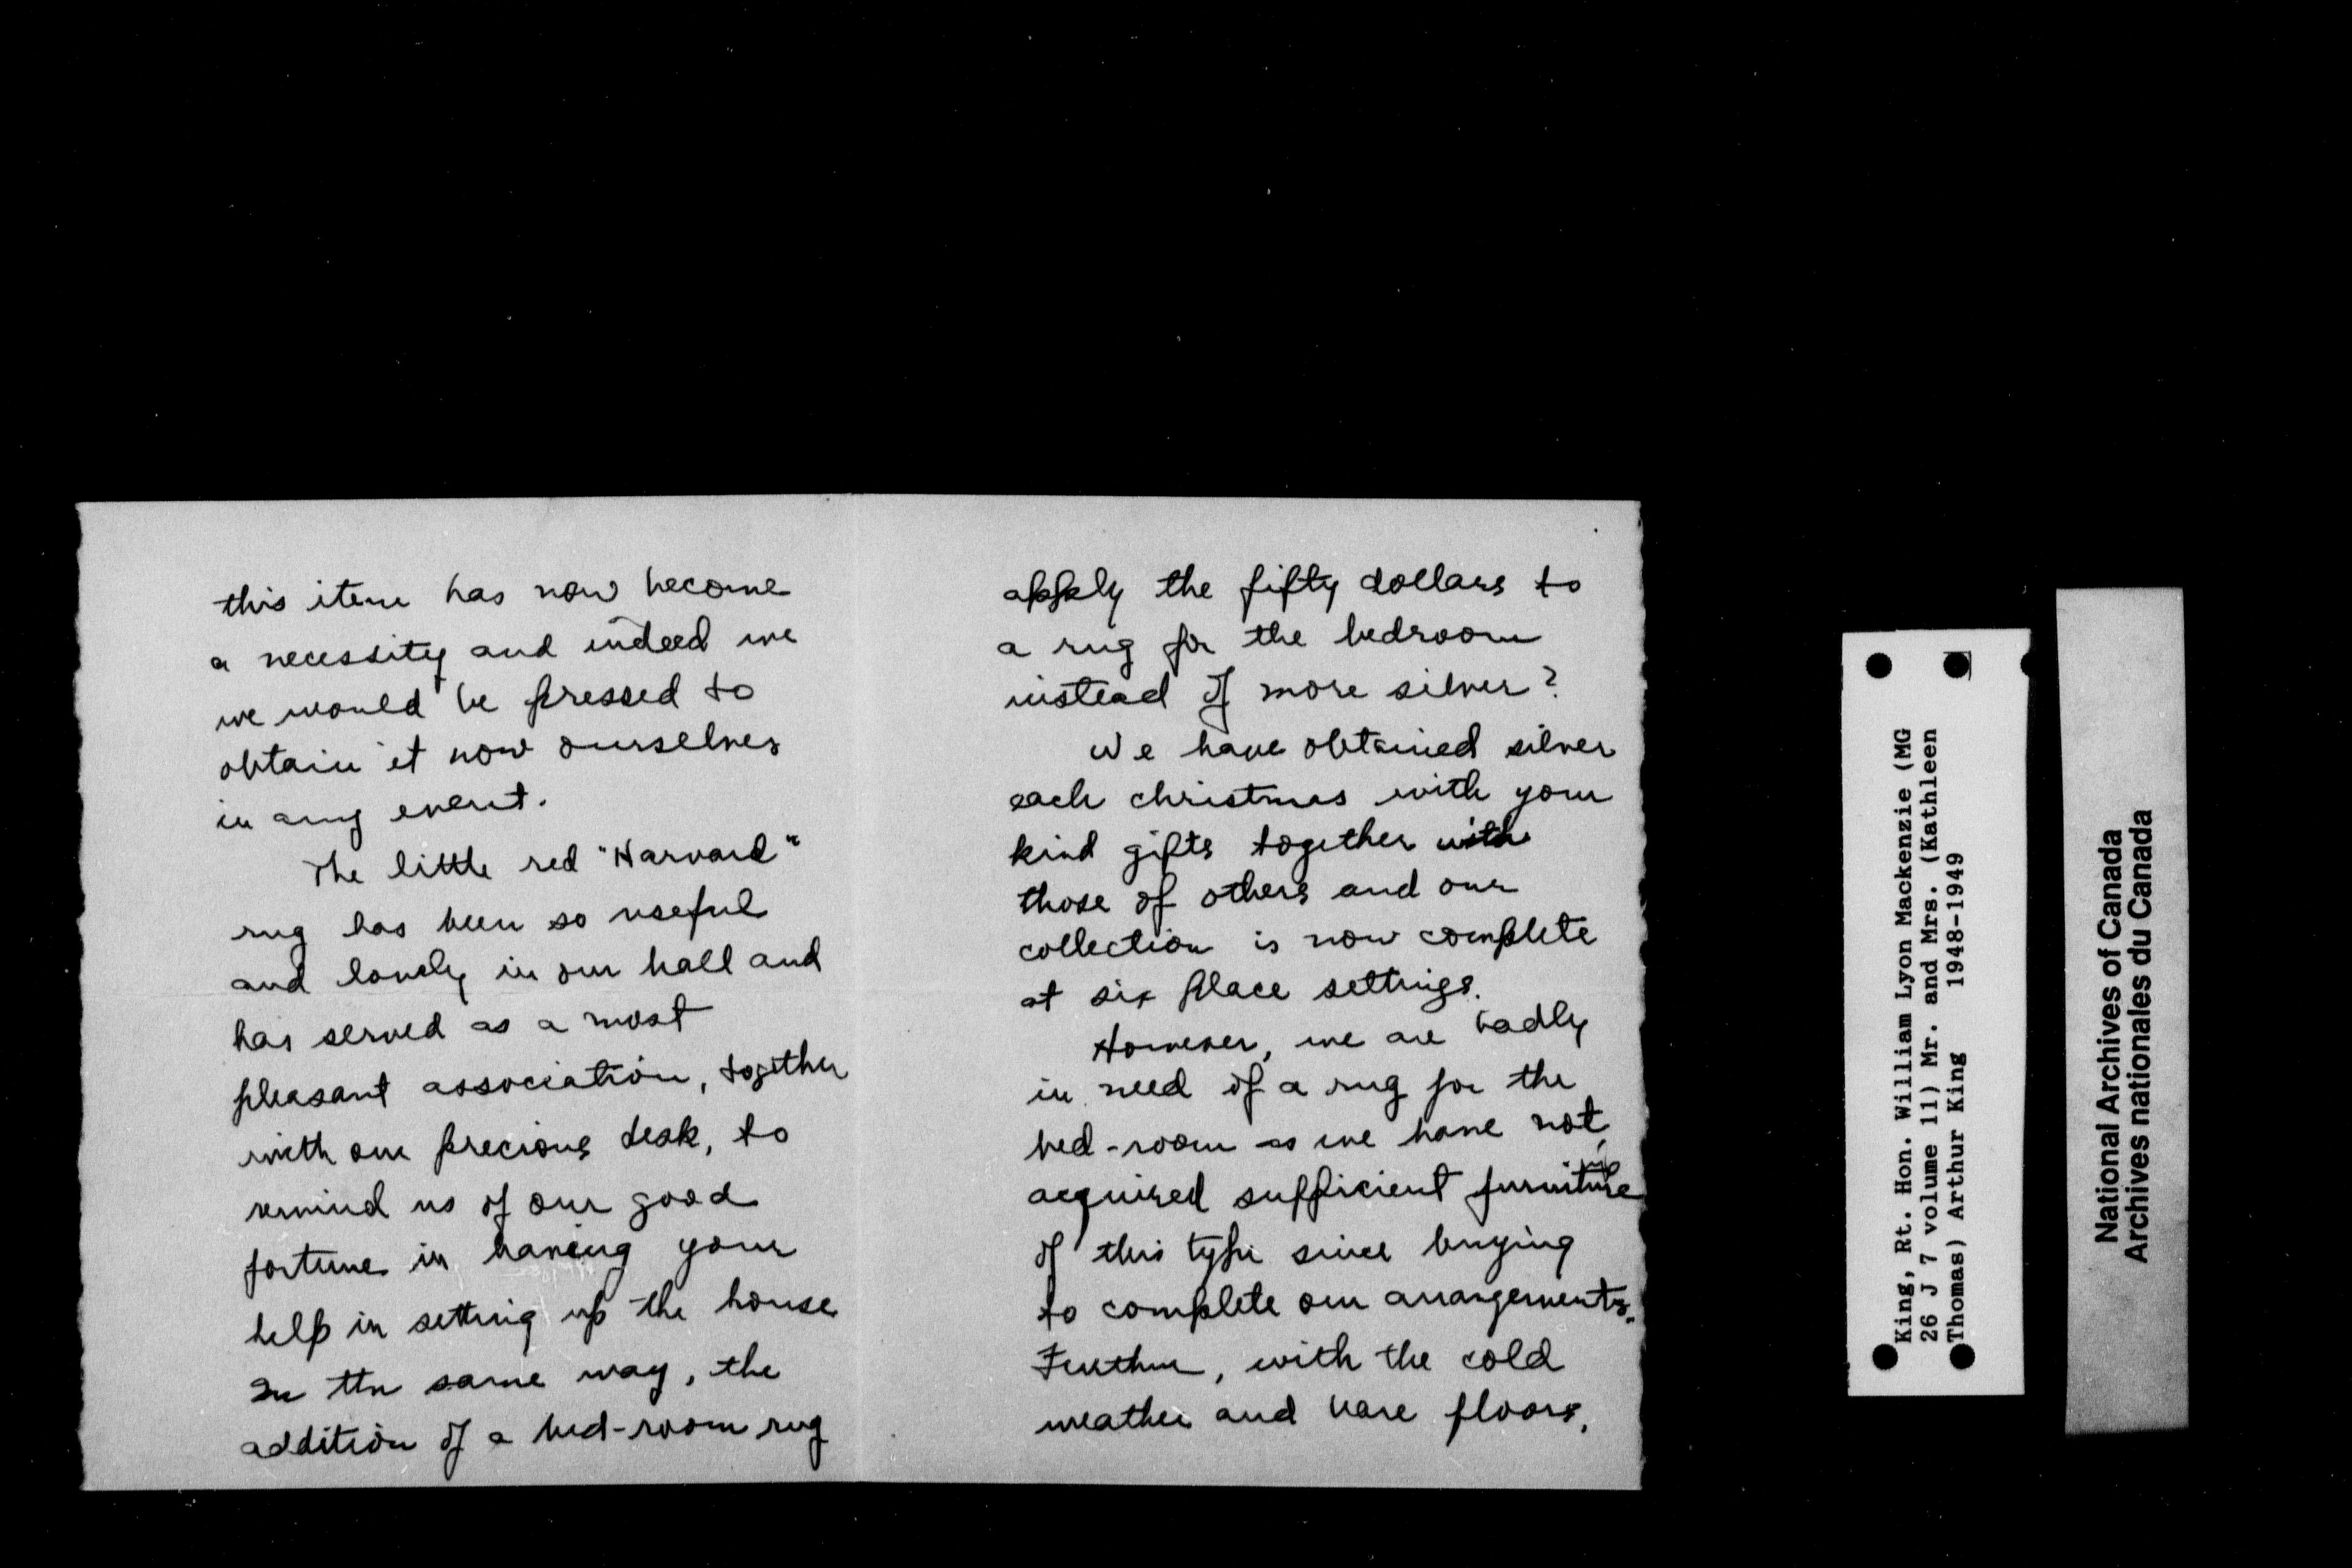 this item has now become
a necessity and indeed we
we would be pressed to
obtain it now ourselves
in any event.
The little red "Harvard"
rug has been so useful
and lovely in our hall and
has served as a most
pleasant association, together
with our precious desk, to
remind us of our good
fortune in having your
help in setting up the house
In the same way, the
addition of a bed-room rug
apply the fifty dollars to
a rug for the bedroom
instead of more silver?
We have obtained silver
each christmas with your
kind gifts together with
those of others and our
collection is now complete
at six place settings.
However, we are badly
in need of a rug for the
bed-room as we have not
acquired sufficient furniture
of this type since buying
to complete our arrangements.
Further, with the cold
weather and bare floors,
King, Rt. Hon. William Lyon Mackenzie (MG
26 J 7 volume 11) Mr. and Mrs. (Kathleen
Thomas) Arthur King 1948-1949
National Archives of Canada
Archives nationales du Canada